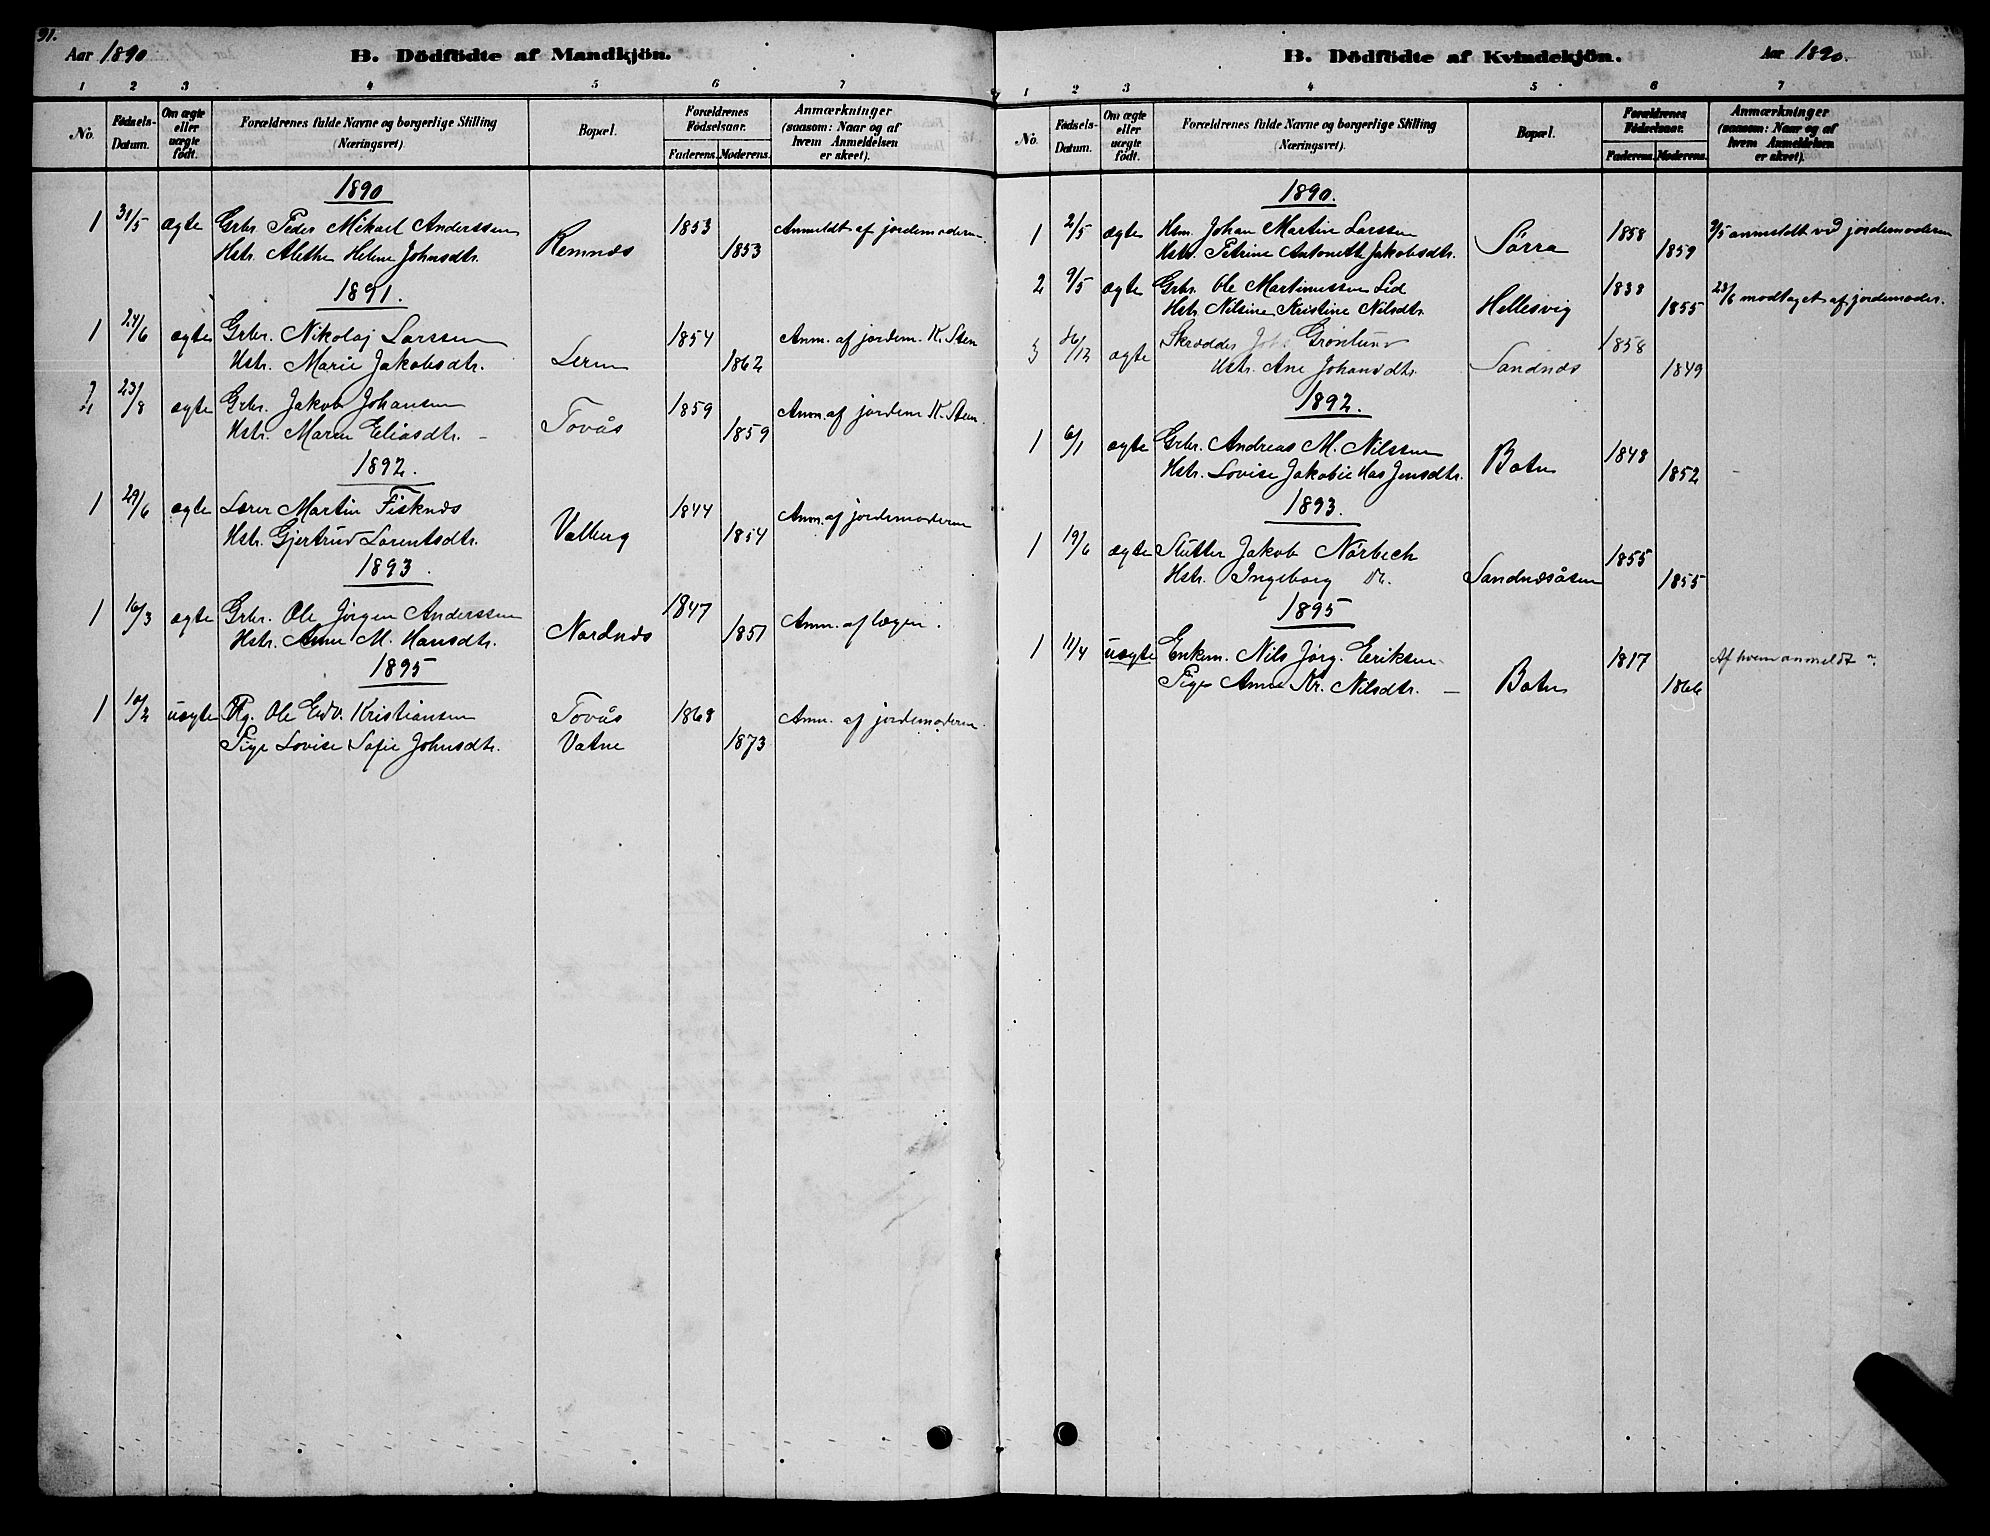 91.
Aar 1890
B. Dödfödte af Mandkjön.
1 2 3 4 5 6 7
No.
Födsels-
Datum.
Om ægte
eller
uægte
födt.
Forældrenes fulde Navne og borgerlige Stilling
(Næringsvei).
Bopæl.
Forældrenes
Födselsaar.
Faderens. Moderens.
Anmærkninger
(saasom: Naar og af
hvem Anmeldelsen
er skeet).
1890
1 31/5 ægte Grbr. Peder Mikael Anderssen 1853 Anmeldt af jordemoderen
Hstr. Alethe Helene Johnsdtr. Remnæs 1853
1891.
1 24/6 ægte Grbr. Nikolaj Larssen 1854 Anm. af jordem. K. Steen
Hstr. Marie Jakobsdtr. Leren 1862
2 23/8 ægte Grbr. Jakob Johansen 1859 Anm. af jordem K. Steen.
Hstr. Maren Eliasdtr. - Tovås 1859
1892.
1 29/6 ægte Lærer Martin Fisknæs 1844 Anm. af jordemoderen
Hstr. Gjertrud Larentsdtr. Valberg 1854
1893.
1 16/3 ægte Grbr. Ole Jørgen Anderssen 1847 Anm. af lægen.
Hstr. Anne M. Hansdtr. Nordnæs 1851
1895
1 10/2 uægte Ug. Ole Edv. Kristiansen Tovås 1868 Anm. af jordemoderen.
Pige Lovise Sofie Johnsdtr. Vatne 1873
B. Dödfödte af Kvindekjön.
Aar 1890.
1 2 3 4 5 6 7
No.
Födsels-
Datum.
Om ægte
eller
uægte
födt.
Forældrenes fulde Navne og borgerlige Stilling
(Næringsvei).
Bopæl.
Forældrenes
Födselsaar.
Faderens. Moderens.
Anmærkninger
(saasom: Naar og af
hvem Anmeldelsen
er skeet).
1890.
1 2/5 ægte Hsm. Johan Martin Larssen 1858 9/5 anmeldt ved jordemoderen
Hstr. Petrine Antonette Jakobsdtr. Sørra 1859
2 9/5 ægte Grbr. Ole Martinussen Lid 1838 23/6 modtaget af jordemoder.
Hstr. Nilsine Kristine Nilsdtr. Hellesvig 1855
3 16/12 ægte Skrædder Joh. Grønlund 1858
Hstr. Ane Johansdtr. Sandnæs 1849
1892.
1 6/1 ægte Grbr. Andreas M. Nilssen 1848
Hstr. Lovise Jakobie Has Jensdtr. Botn 1852 -
1893.
1 19/6 ægte Slutter Jakob Nørbech 1855
Hstr. Ingeborg Sandnæsåsen 1855
1895
1 11/4 uægte Enkem. Nils Jørg. Eriksen 1817 Af hvem anmeldt?
Pige Anne Kr. Nilsdtr. - Botn 1866